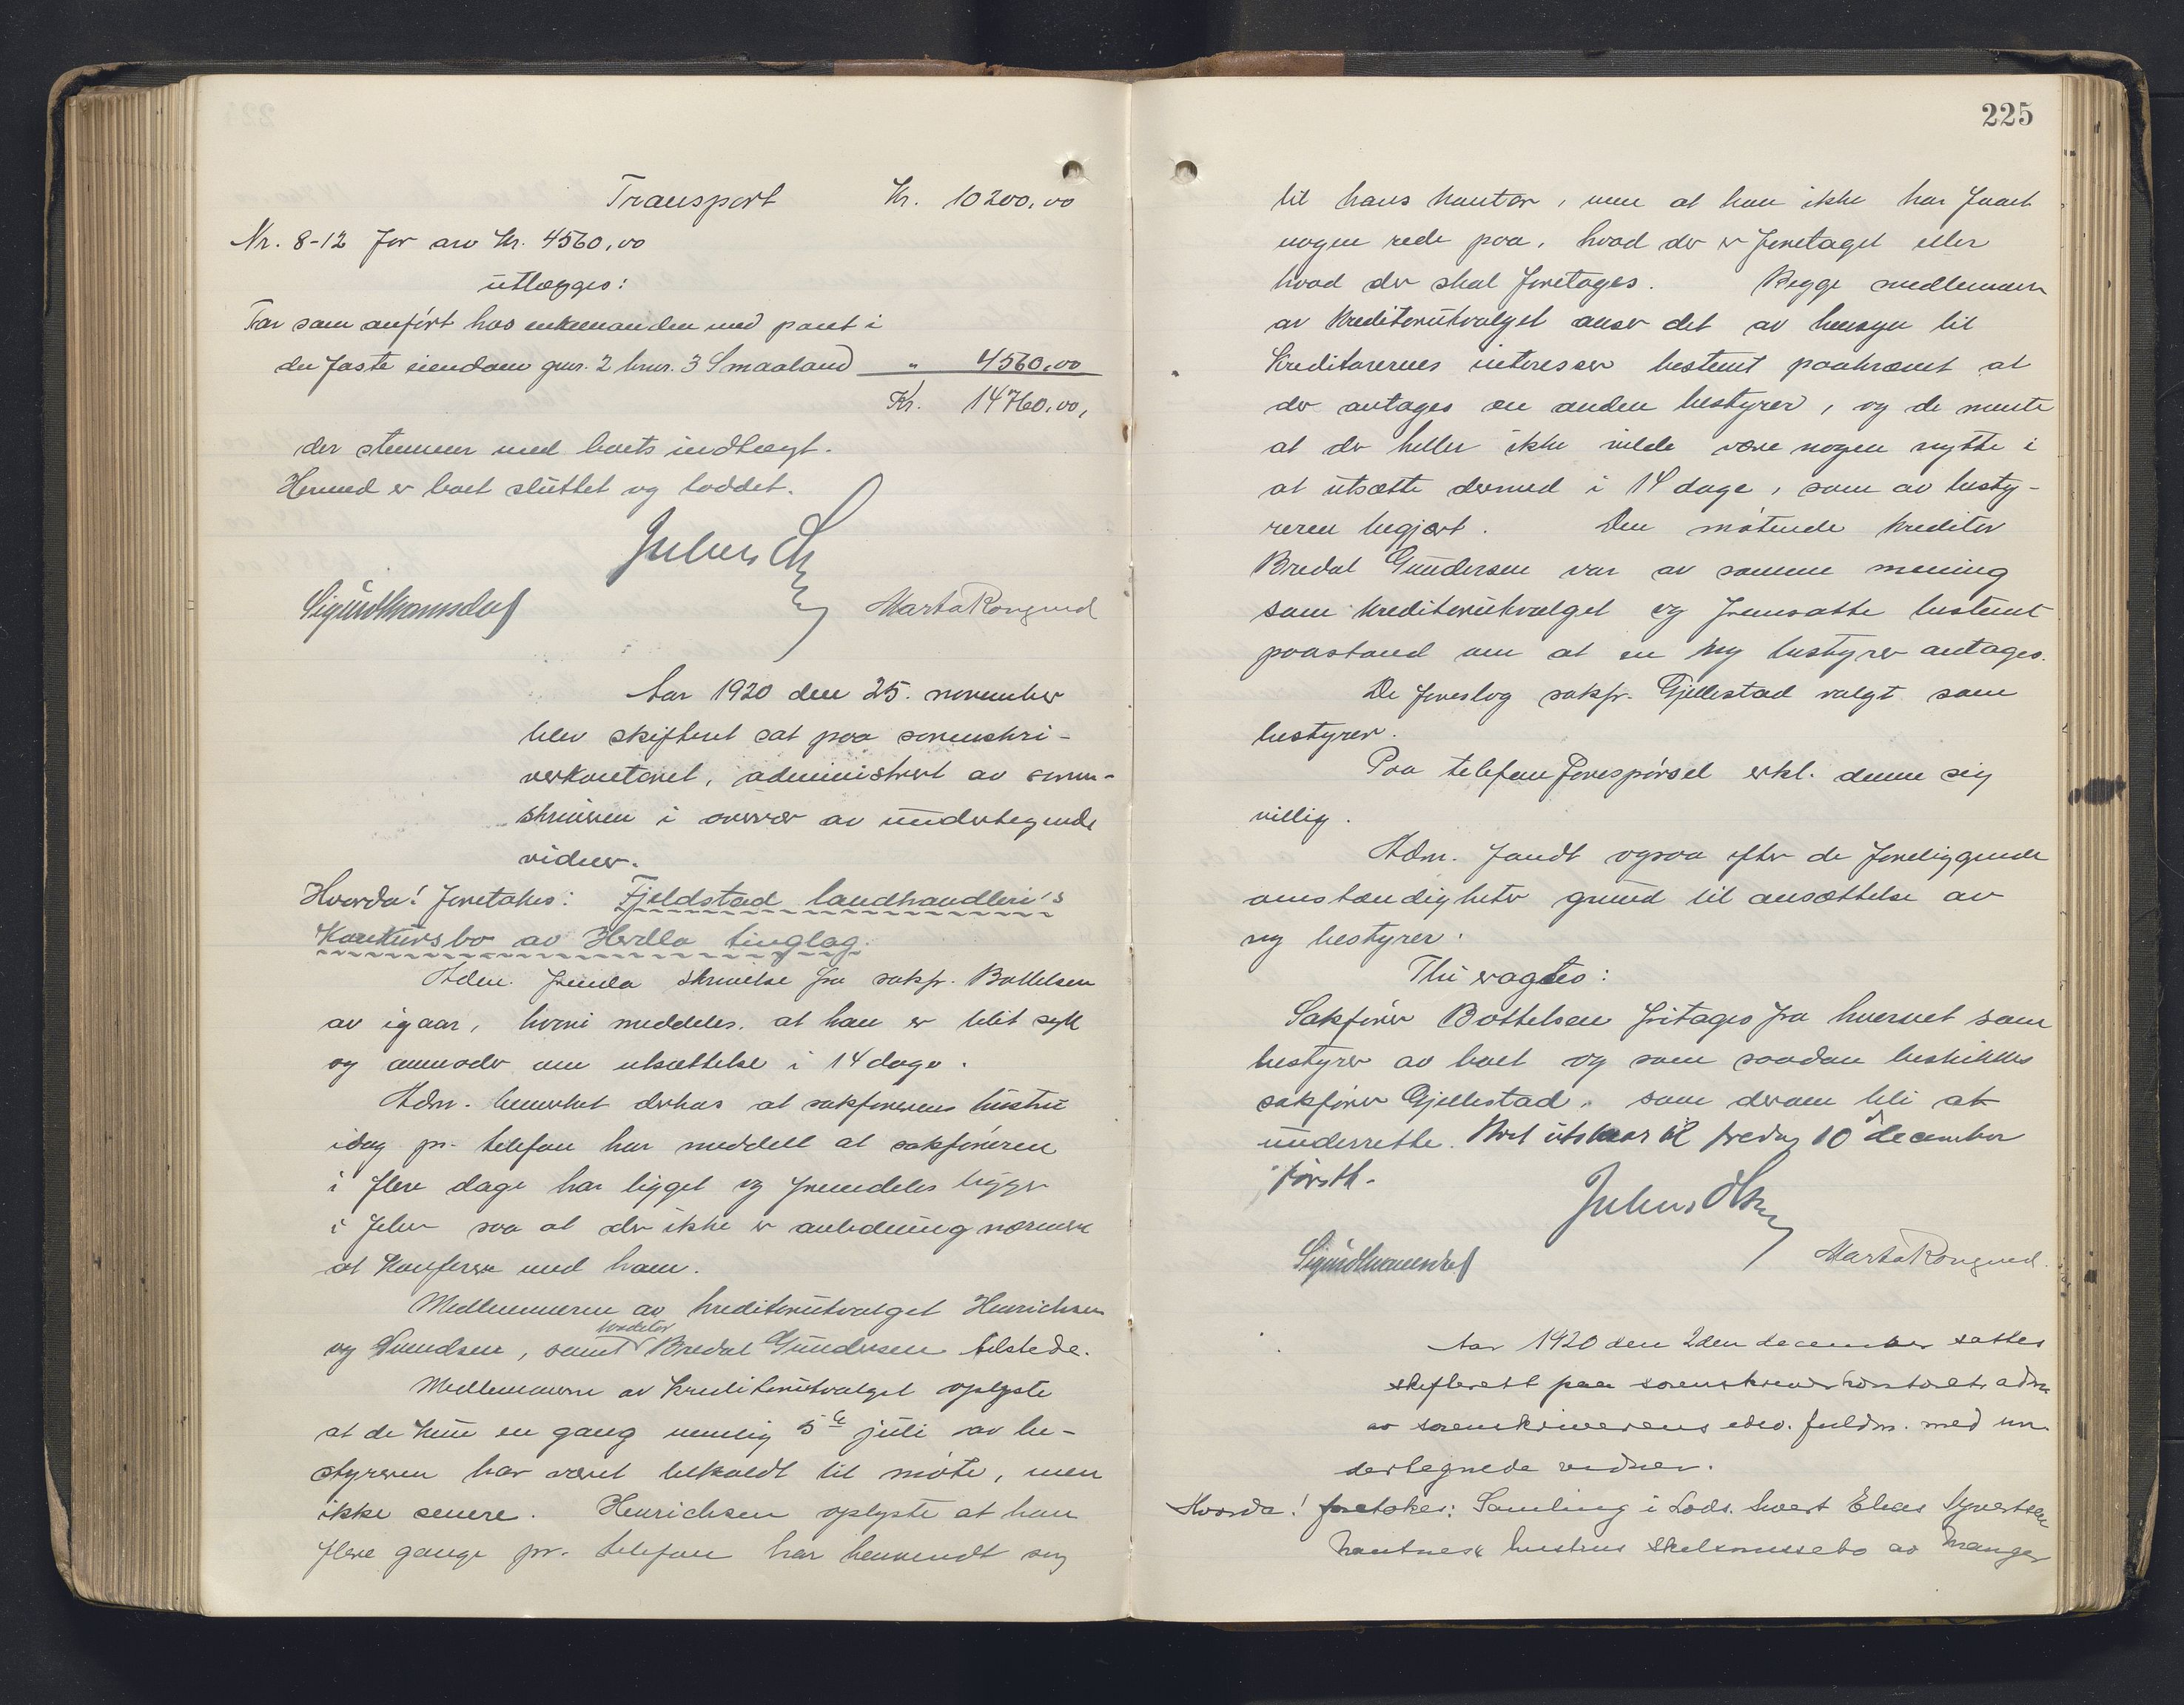 Transport Kr. 10200,00
Nr. 8-12 for arv Kr. 4560,00
utlægges:
Far som anført hos enkemanden med pant i
den faste eiendom gnr. 2 bnr. 3 Smaaland " 4560,00
Kr. 14760,00,
der stemmer med boets indtægt.
Hermed er boet sluttet og loddet.
Julius Olsen
Marta Rongved
Aar 1920 den 25. november
blev skifteret sat paa sorenskri-
verkontoret, administrert av soren-
skriveren i overvær av undertegnede
vidner.
Hvorda! foretakes: Fjeldstad landhandleri's
Konkursbo av Herdla tinglag.
Adm. fremla skrivelse fra sakf. Bottelsen
av igaar, hvori meddeles. at han er blit syk
og anmoder om utsættelse i 14 dage.
Adm. bemerket derhos at sakførerens hustru
idag pr. telefon har meddelt at sakføreren
i flere dage har ligget og fremdeles ligger
i feber saa at der ikke er anledning nærmere
at konferere med ham.
Medlemmerne av kreditorutvalget Henrichsen
og Gundsen, samt kreditor Bredal Gundersen tilstede.
Medlemmerne av kreditorutvalget oplyste
at de kun en gang nemlig 5te juli av be-
styreren har været tilkaldt til møte, men
ikke senere. Henrichsen oplyste at han
flere gange pr. telefon har henvendt sig
225
til hans kontor, men at han ikke har faaet
nogen rede paa, hvad der er foretaget eller
hvad der skal foretages. Begge medlemmer
av kreditorutvalget anser det av hensyn til
kreditorernes interesser bestemt paakrævet at
der antages en anden bestyrer, og de mente
at der heller ikke vilde være nogen nytte i
at utsætte dermed i 14 dage, som av besty-
reren begjært. Den møtende kreditor
Bredal Gundersen var av samme mening
som kreditorutvalget og fremsatte bestemt
paastand om at en ny bestyrer antages.
De foreslog sakf. Gjellestad valgt som
bestyrer.
Paa telefonforespørsel erkl. denne sig
villig.
Adm. fandt ogsaa efter de foreliggende
omstændigheter grund til ansættelse av
ny bestyrer.
Thi eragtes:
Sakfører Bottelsen fritages fra hvervet som
bestyrer av boet og som saadan beskikkes
sakfører Gjellestad, som derom bli at
underrette. Boet utstaar til fredag 10 december
førstk.
Julius Olsen
Marta Rongved.
Aar 1920 den 2den december sattes
skifterett paa sorenskriverkontoret, adm.
av sorenskriverens edsv. fuldm. med un-
dertegnede vidner.
Hvorda! foretakes: Samling i Lods. hvert Elias Syvertsen
hustrus skelsmissebo av Manger